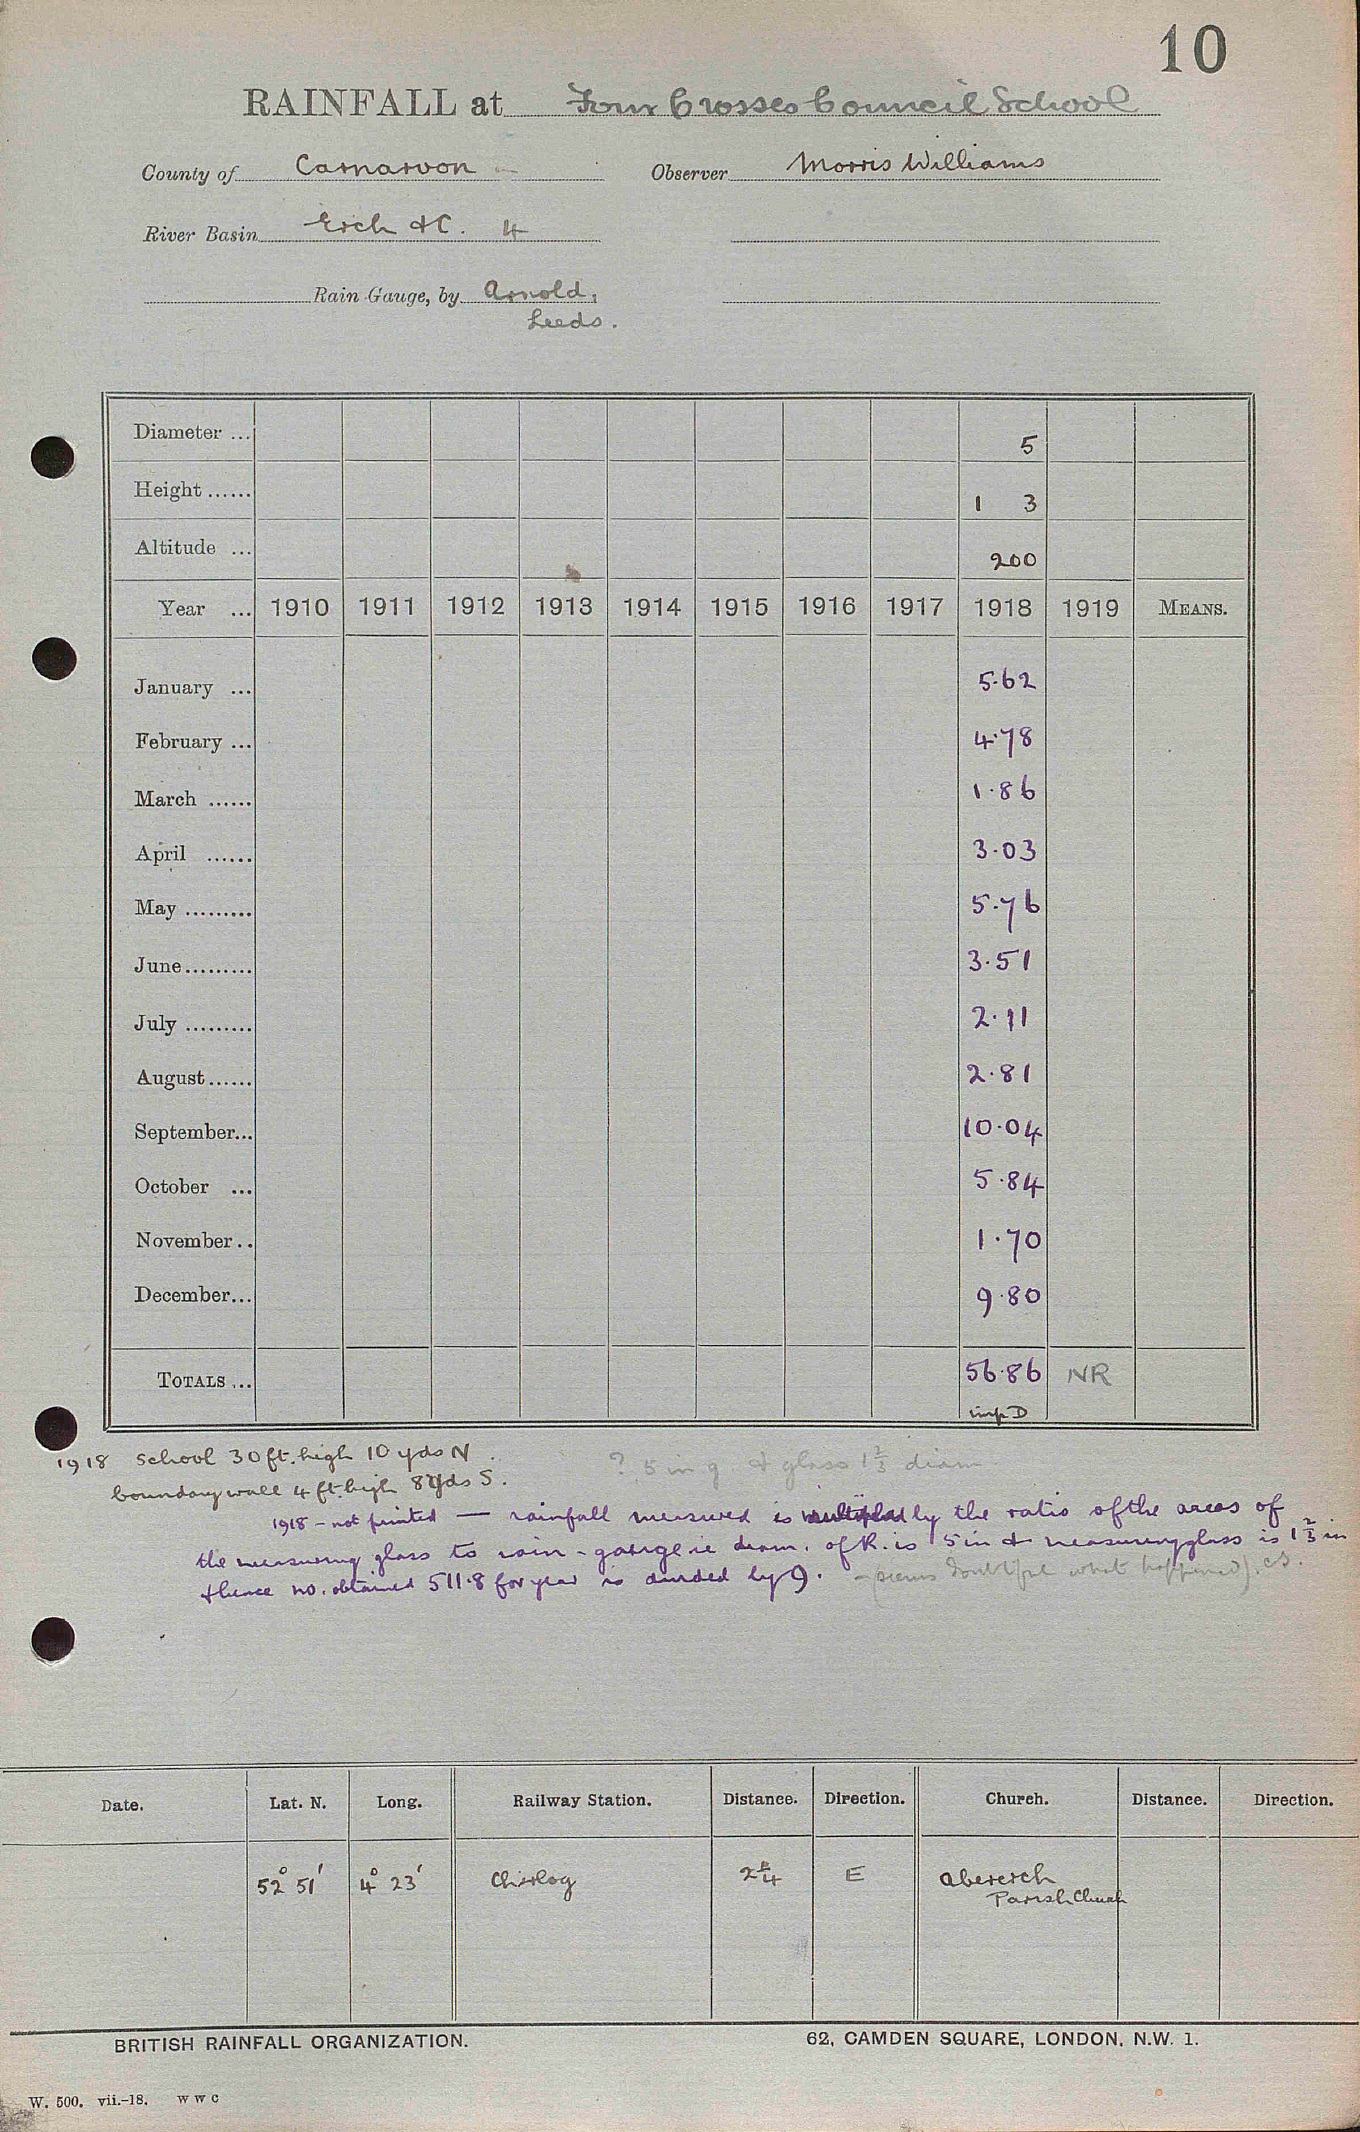 10
RAINFALL at Four Crosses Council School
County of Carnarvon Observer Morris Williams
River Basin Erch &C. 4
Rain Gauge, by Arnold,
Leeds.
Diameter ... 5
Height ...... 1 3
Altitude ... 200
Year ... 1910 1911 1912 1913 1914 1915 1916 1917 1918 1919 MEANS.
January ... 5.62
February ... 4.78
March ...... 1.86
April ...... 3.03
May ......... 5.76
June ......... 3.51
July ......... 2.11
August ...... 2.81
September... 10.04
October ... 5.84
November .. 1.70
December... 9.80
TOTALS ... 56.86 NR
imp D
1918 School 30 ft. high 10 yds N.
? 5 in g & glass 1 2/3 diam.
boundary wall 4 ft. high 8 yds S.
1918 - not printed — rainfall measured is multiplied by the ratio of the areas of
the measuring glass to rain-gauge ie diam. of R. is 5 in & measuring glass is 1 2/3 in
& hence no. obtained 511.8 for year is divided by 9. - (seems doubtful what happened). CS.
Date. Lat. N. Long. Railway Station. Distance. Direction. Church. Distance. Direction.
52° 51' 4° 23' Chwilog E Abererch
Parish Church
BRITISH RAINFALL ORGANIZATION. 62, CAMDEN SQUARE, LONDON, N.W. 1.
W. 500. vii.-18. W W C